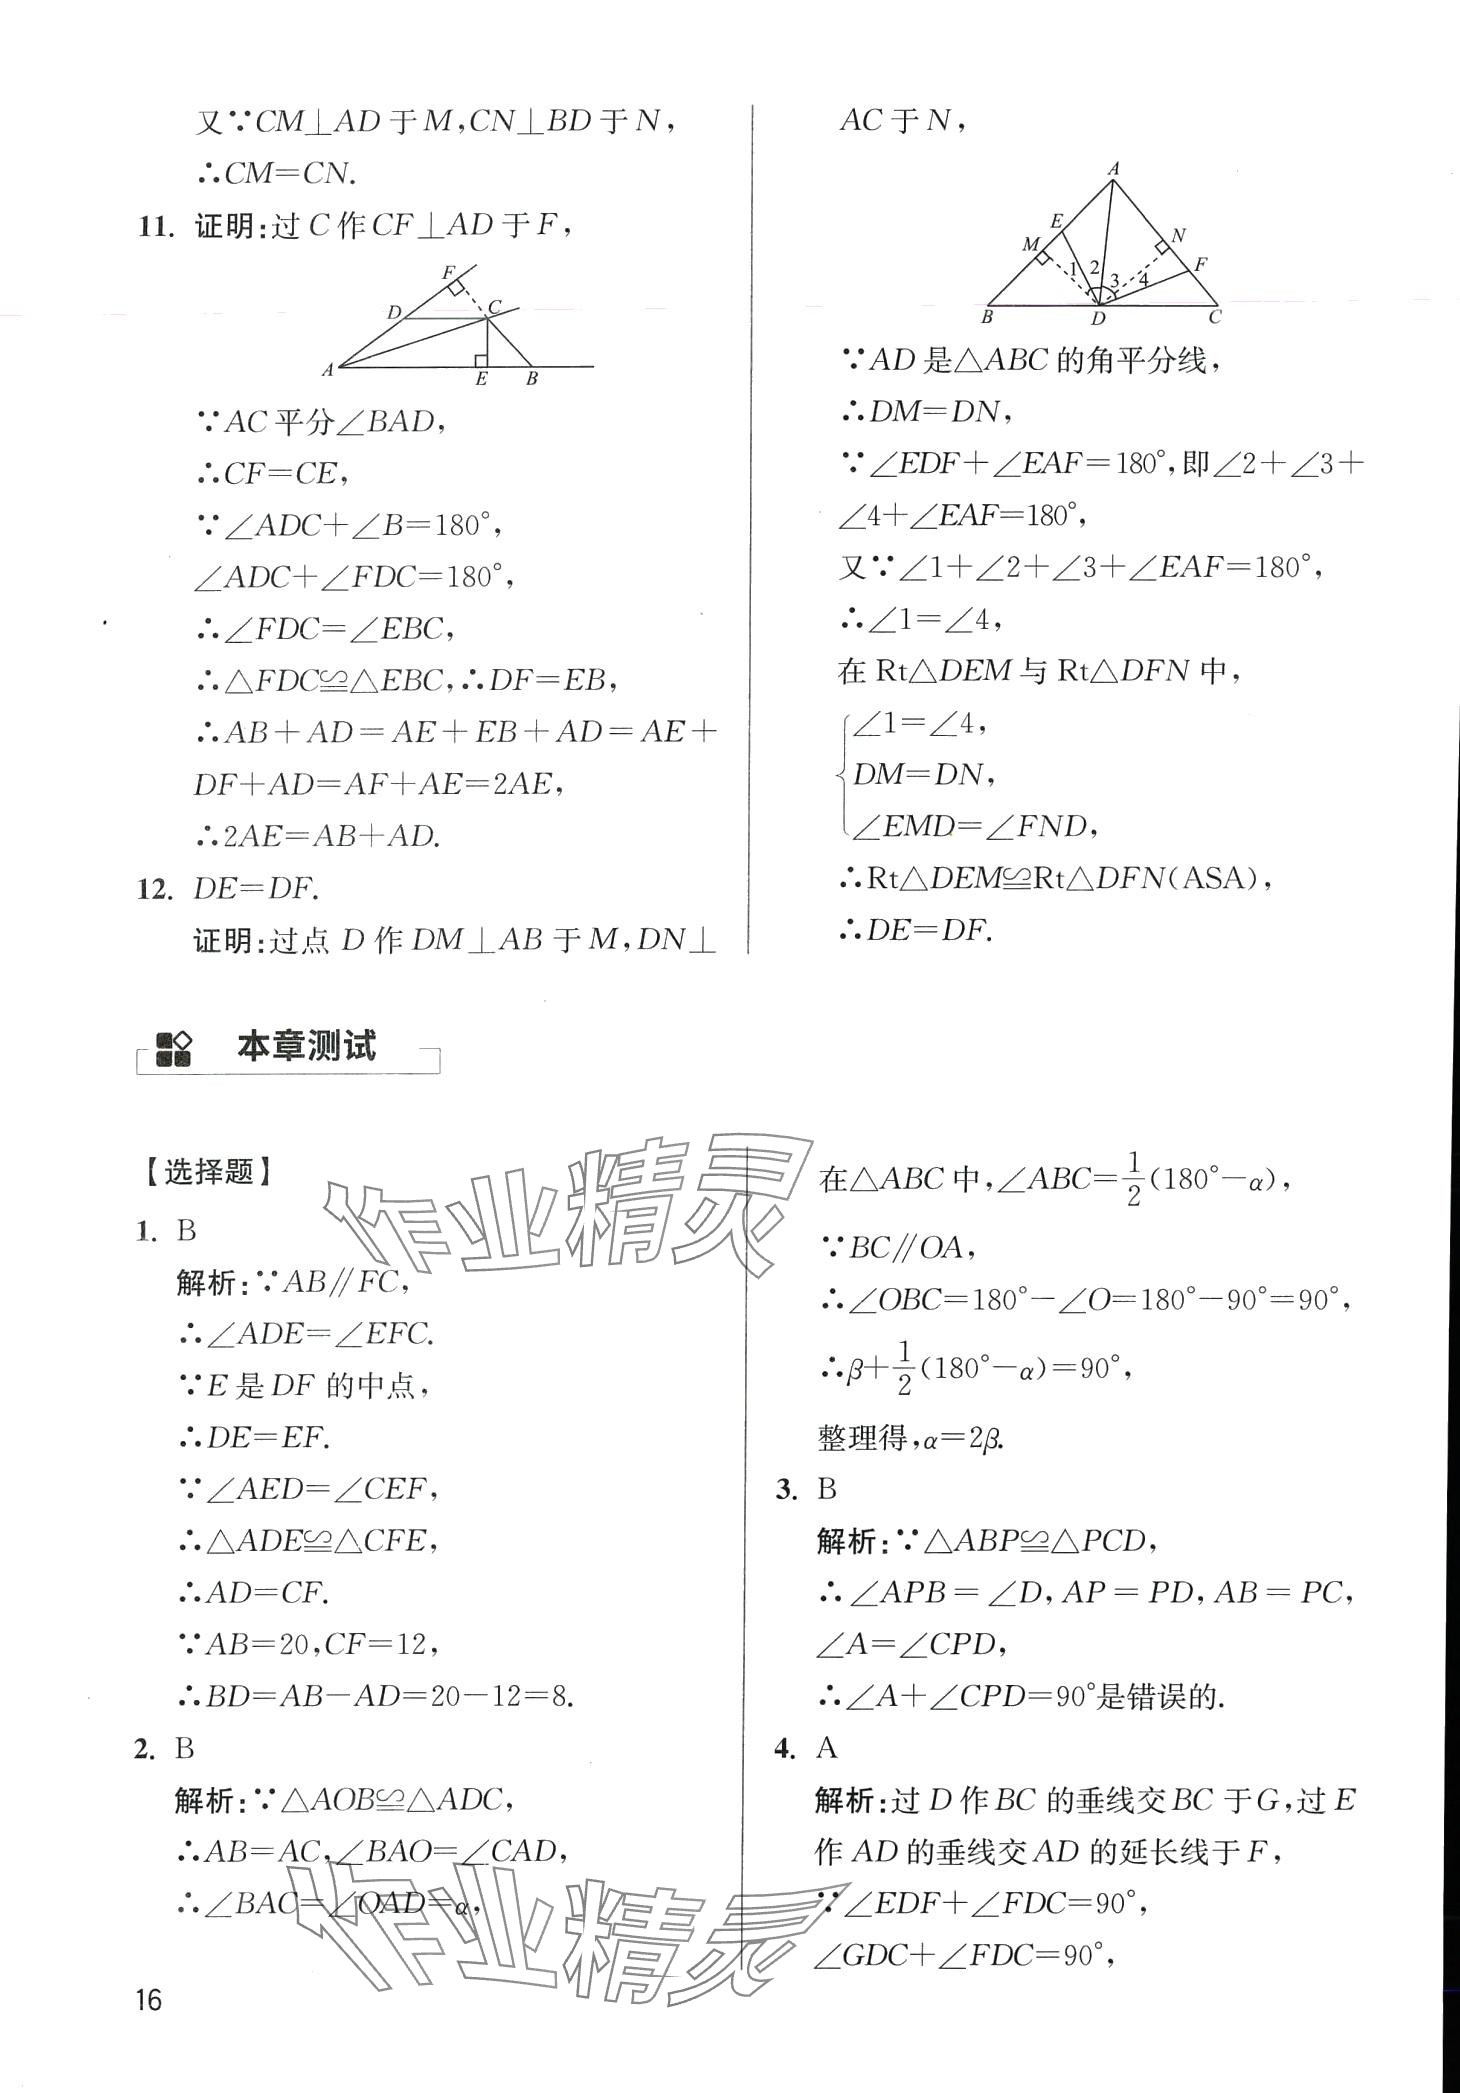 又∵CM⊥AD于M,CN⊥BD于N,
∴CM=CN.
11. 证明:过C作CF⊥AD于F,
F
D
C
A
E
B
∵AC平分∠BAD,
∴CF=CE,
∵∠ADC+∠B=180°,
∠ADC+∠FDC=180°,
∴∠FDC=∠EBC,
∴△FDC≌△EBC,∴DF=EB,
∴AB+AD=AE+EB+AD=AE+
DF+AD=AF+AE=2AE,
∴2AE=AB+AD.
12. DE=DF.
证明:过点D作DM⊥AB于M,DN⊥
AC于N,
A
E
M
N
F
1 2 3 4
B
D
C
∵AD是△ABC的角平分线,
∴DM=DN,
∵∠EDF+∠EAF=180°,即∠2+∠3+
∠4+∠EAF=180°,
又∵∠1+∠2+∠3+∠EAF=180°,
∴∠1=∠4,
在Rt△DEM与Rt△DFN中,
∠1=∠4,
DM=DN,
∠EMD=∠FND,
∴Rt△DEM≌Rt△DFN(ASA),
∴DE=DF.
本章测试
【选择题】
1. B
解析:∵AB∥FC,
∴∠ADE=∠EFC.
∵E是DF的中点,
∴DE=EF.
∵∠AED=∠CEF,
∴△ADE≌△CFE,
∴AD=CF.
∵AB=20,CF=12,
∴BD=AB-AD=20-12=8.
2. B
解析:∵△AOB≌△ADC,
∴AB=AC,∠BAO=∠CAD,
∴∠BAC=∠OAD=α,
在△ABC中,∠ABC=1/2(180°-α),
∵BC∥OA,
∴∠OBC=180°-∠O=180°-90°=90°,
∴β+1/2(180°-α)=90°,
整理得,α=2β.
3. B
解析:∵△ABP≌△PCD,
∴∠APB=∠D,AP=PD,AB=PC,
∠A=∠CPD,
∴∠A+∠CPD=90°是错误的.
4. A
解析:过D作BC的垂线交BC于G,过E
作AD的垂线交AD的延长线于F,
∵∠EDF+∠FDC=90°,
∠GDC+∠FDC=90°,
作业精灵
作业精灵
16